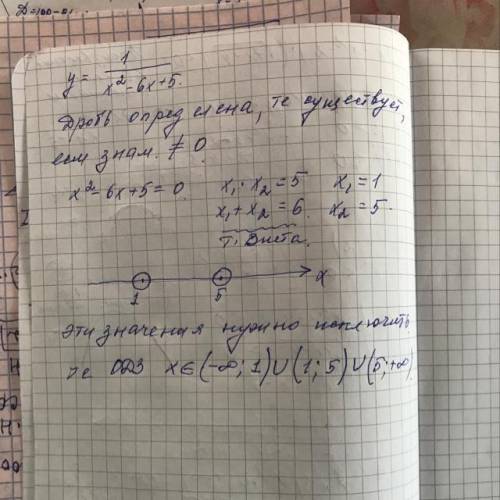 Д=100-
y = 1/(x²-6x+5).
Дробь определена, те существует,
если знам. ≠ 0.
x²-6x+5=0. x₁·x₂=5 x₁=1
x₁+x₂=6. x₂=5.
т. Виета.
1 5 x
Эти значения нужно исключить
те ОДЗ x∈(-∞; 1)∪(1; 5)∪(5; +∞)